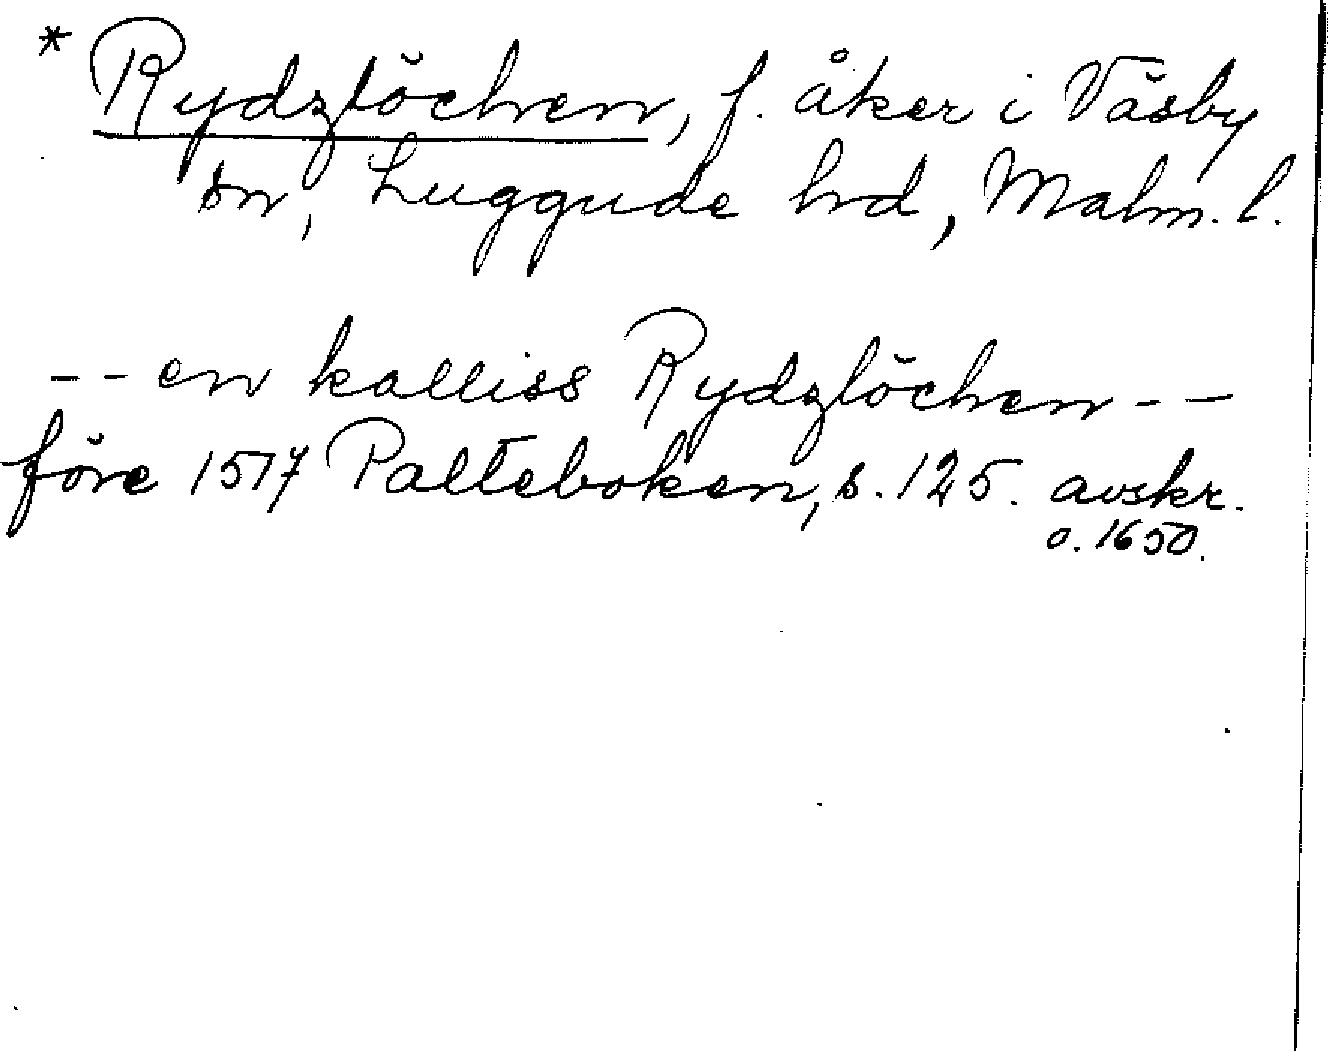 * Rydzlöchen, f. åker i Väsby
sn, Luggude hd, Malm. l.
-- en kalliss Rydzlöchen --
före 1517 Palteboken, s. 125. avskr.
o. 1650.